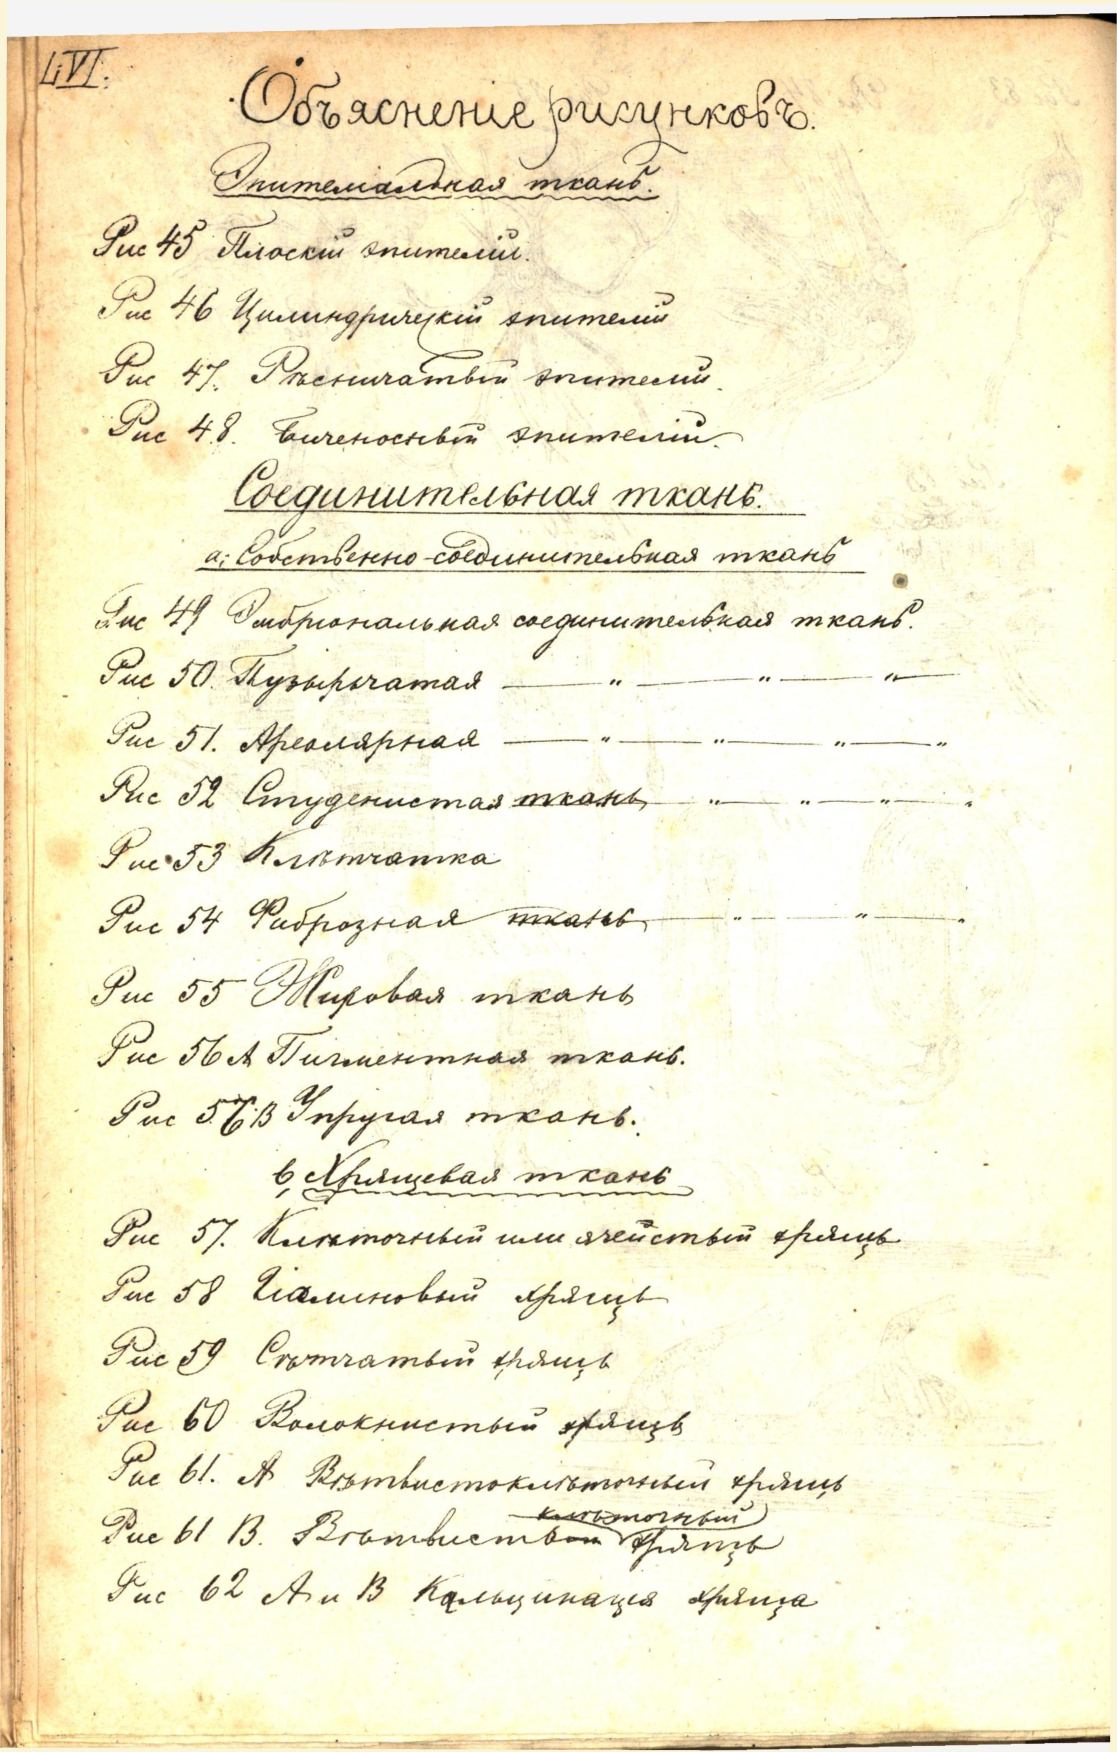 LVI.
Объясненіе рисунковъ.
Эпителіальная ткань.
Рис 45 Плоскій эпителій.
Рис 46 Цилиндрическій эпителій
Рис 47. Рѣсничатый эпителій.
Рис 48. Биченосный эпителій.
Соединительная ткань.
а; Собственно-соединительная ткань
Рис 49 Эмбріональная соединительная ткань.
Рис 50. Пузырчатая — " — " — " —
Рис 51. Ареолярная — " — " — " — "
Рис 52 Студенистая ткань — " — " — " — "
Рис 53 Клѣтчатка
Рис 54 Фиброзная ткань — " — " — "
Рис 55 Жировая ткань
Рис 56 А Пигментная ткань.
Рис 56 В Упругая ткань.
в, Хрящевая ткань
Рис 57. Клѣточный или ячеистый хрящъ
Рис 58 Гіалиновый хрящъ
Рис 59 Сѣтчатый хрящъ
Рис 60 Волокнистый хрящъ
Рис 61. А Вѣтвистоклѣточный хрящъ
клѣточный
Рис 61 В. Вѣтвистый хрящъ
Рис 62 А и В Кальцинація хряща